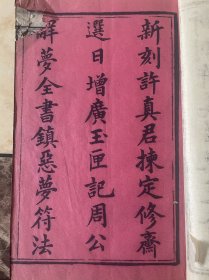 新刻許真君揀定修齋
選日增廣玉匣記周公
解夢全書鎮惡夢符法